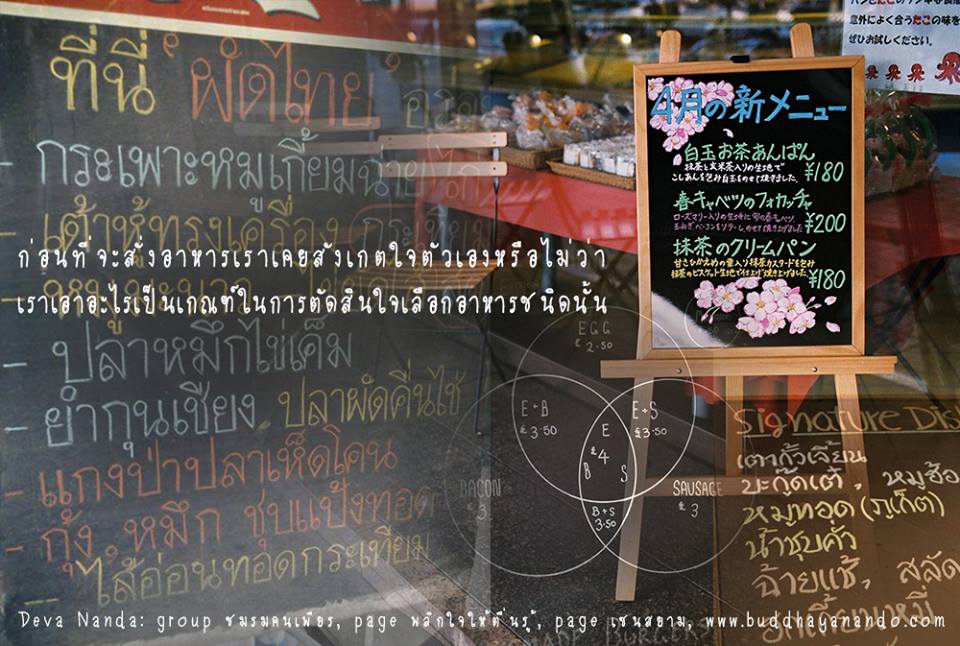 ที่นี่ 'ผัดไทย'
- กระเพาะหมูเกี้ยม
- เต้าหู้ทรงเครื่อง
ก่อนที่จะสั่งอาหารเราเคยสังเกตใจตัวเองหรือไม่ว่า
เราเอาอะไรเป็นเกณฑ์ในการตัดสินใจเลือกอาหารชนิดนั้น
- ปลาหมึกไข่เค็ม
- ยำกุนเชียง. ปลาผัดคื่นไช่
- แกงป่าปลาเห็ดโคน
- กุ้ง, หมึก ชุบแป้งทอด
- ไส้อ่อนทอดกระเทียม
意外によく合うたこの味を
ぜひお試しください。
4月の新メニュー
白玉お茶あんぱん
抹茶と玄米茶入りの生地で
こしあんを包み白玉をのせて焼きました。 ¥180
春キャベツのフォカッチャ
ローズマリー入りの生地に旬の春キャベツ、
¥200
抹茶のクリームパン
甘さひかえめの
¥180
EGG
2.50
E+B
£3.50
E+S
£3.50
E
£4
B S
BACON
£3
SAUSAGE
£3
B+S
3.50
Signature Dis
เตากั้วเจี้ยน
บะกู๊ดเต๋, หมูฮ้อ
หมูทอด (ภูเก็ต)
น้ำชุบคั่ว
ฉ้ายแช้, สลัด
BURGERS
Deva Nanda: group ชมรมคนเพียร, page พลิกใจให้ตื่นรู้, page เซนสยาม, www.buddhayanando.com